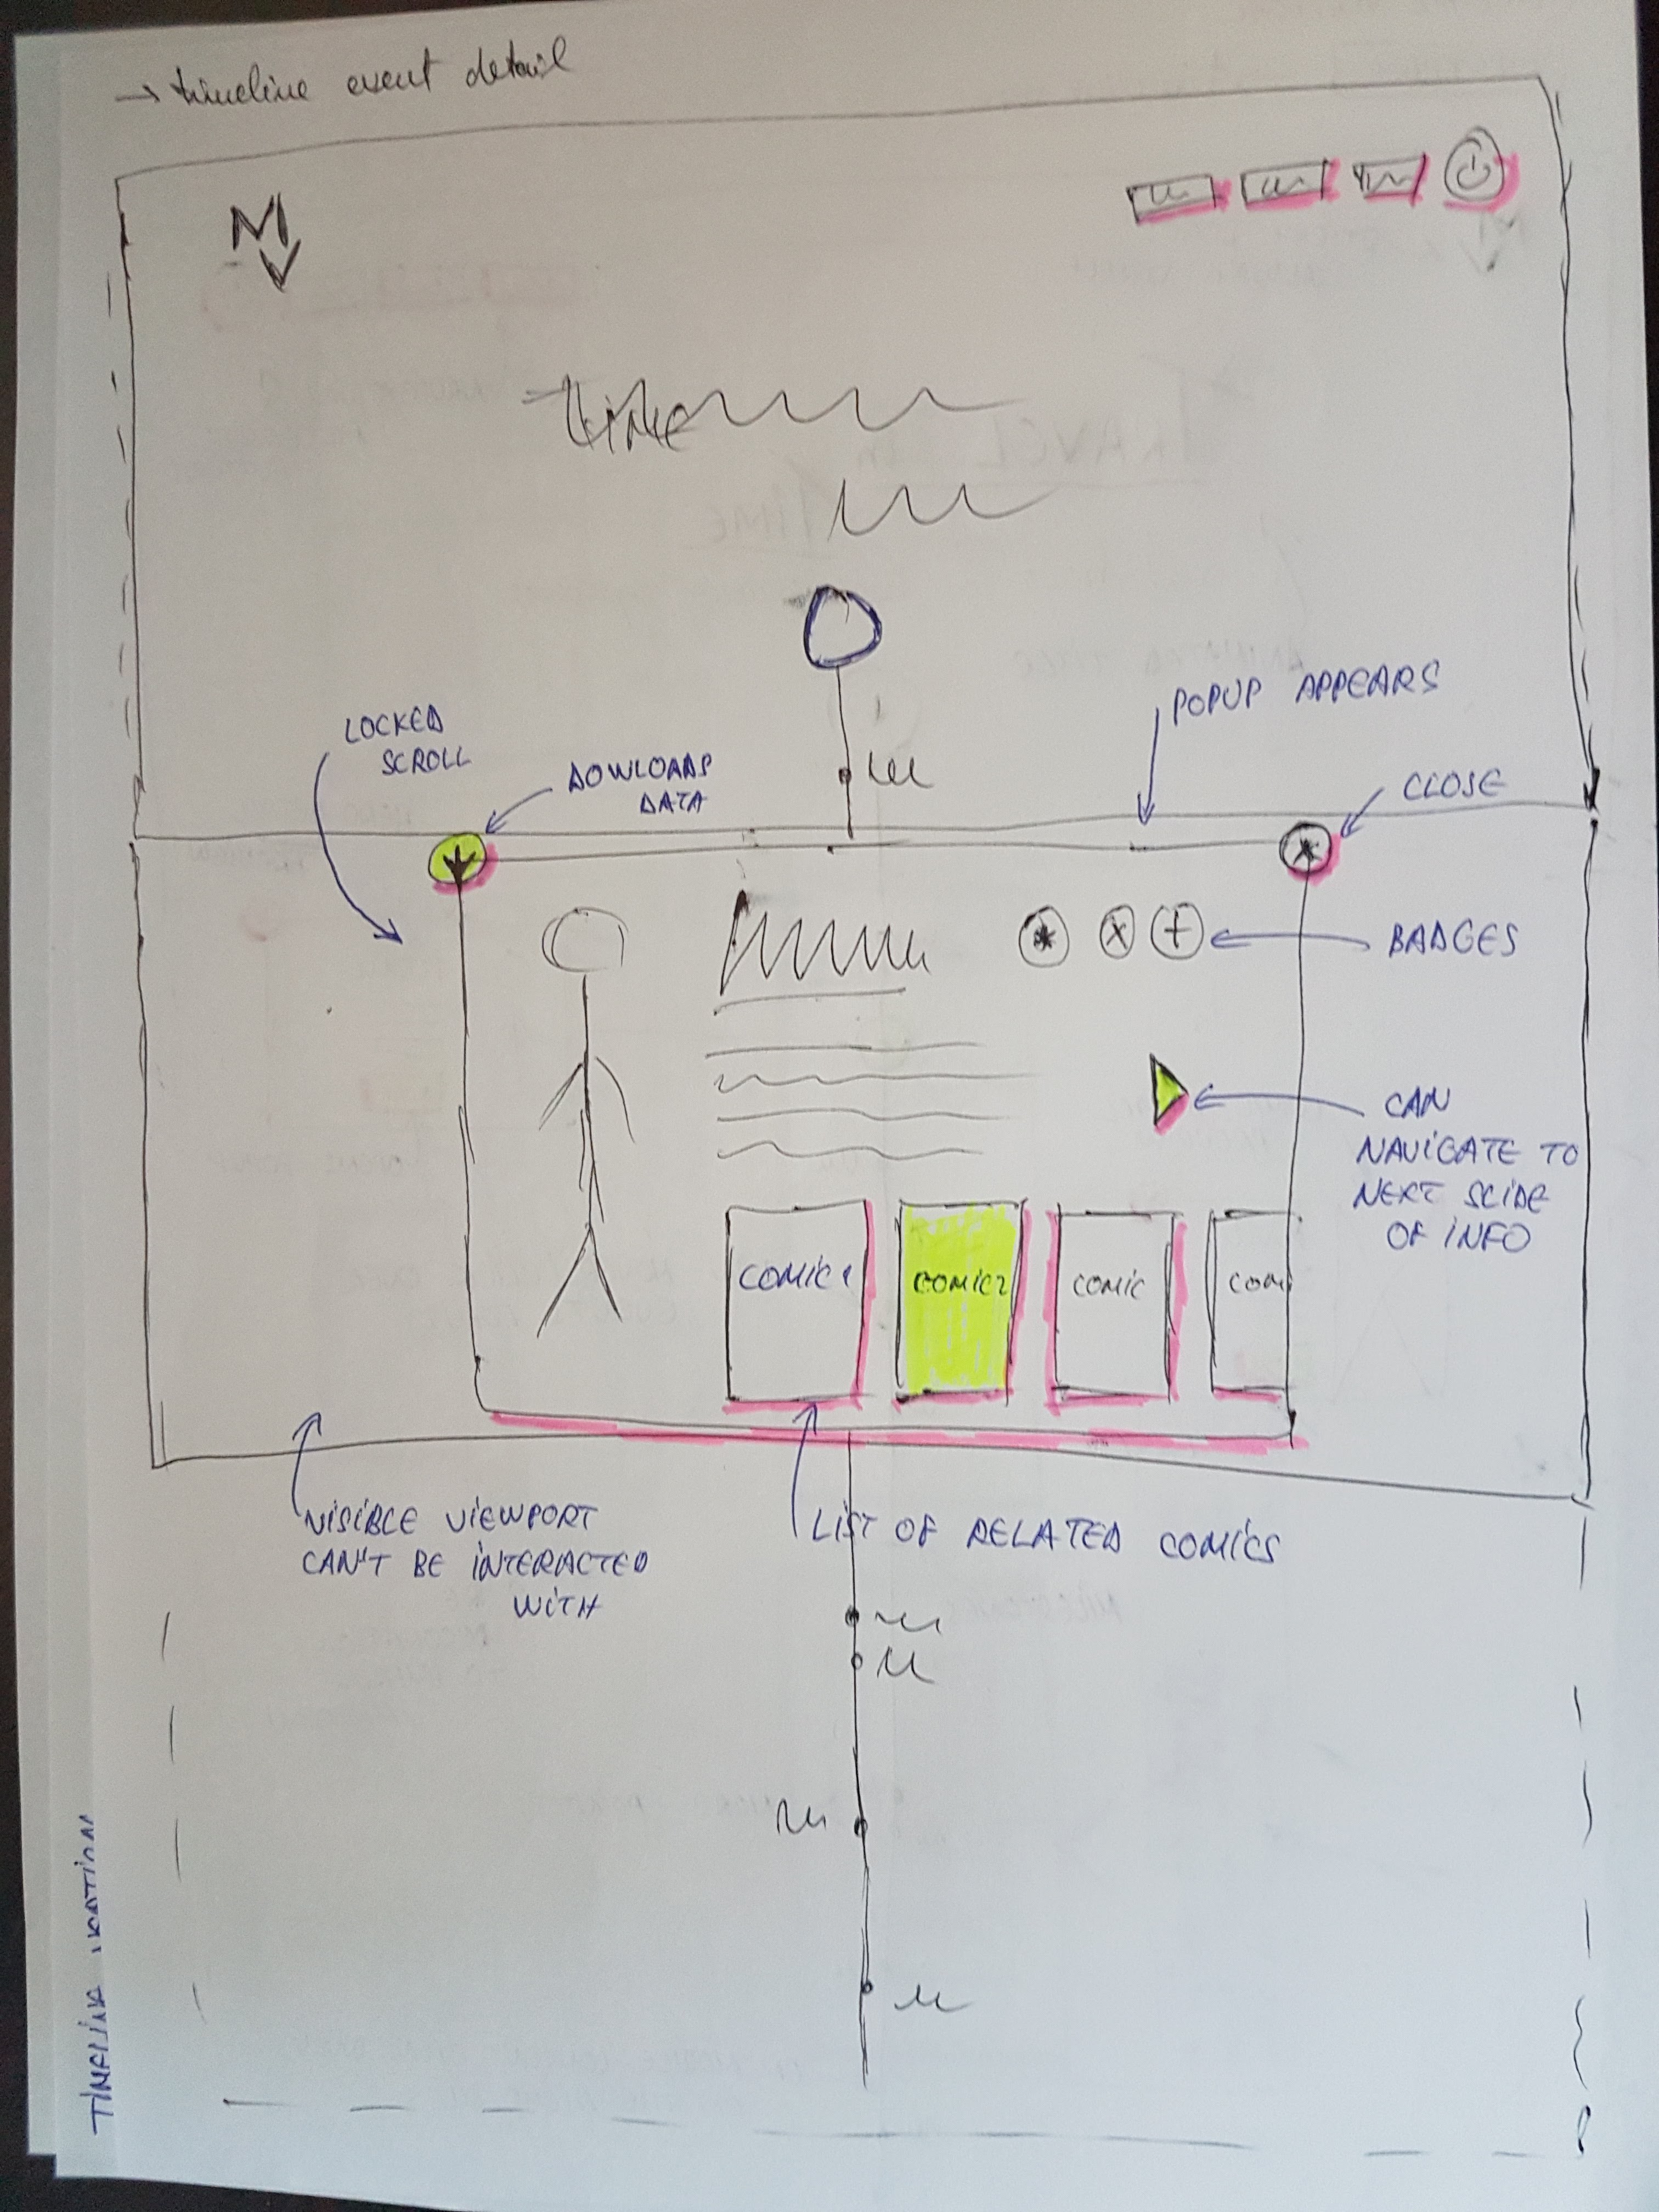 → timeline event detail
M
V
Time
LOCKED
SCROLL
DOWLOADS
DATA
POPUP APPEARS
CLOSE
BADGES
CAN
NAVIGATE TO
NEXT SLIDE
OF INFO
COMIC1
COMIC2
COMIC
COM
VISIBLE VIEWPORT
CAN'T BE INTERACTED
WITH
LIST OF RELATED COMICS
TIMELINE